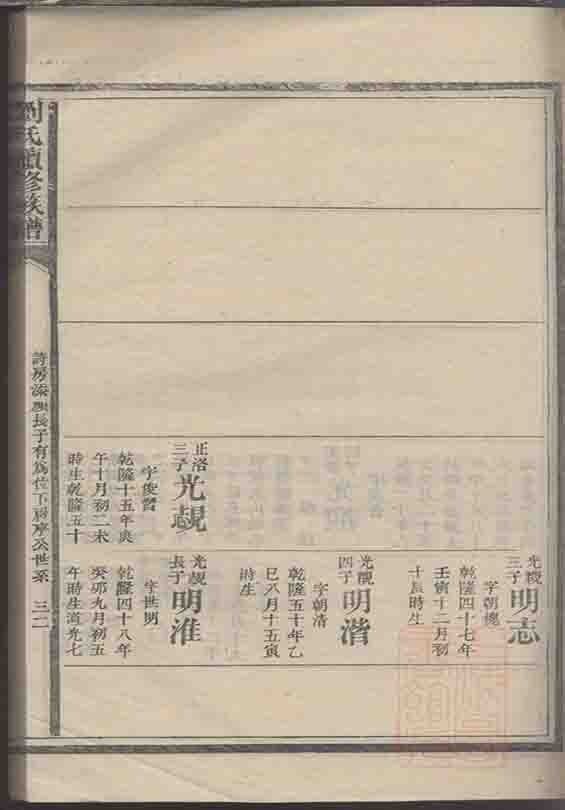 劉氏續修族譜
正洛
三子
光覬
字俊賢
乾隆十五年庚
午十月初二未
時生乾隆五十
三子
明志
字朝
乾隆四十七年
壬寅十二月初
十辰時生
四子
明湝
字朝清
乾隆五十年乙
巳八月十五寅
時生
光覬
長子
明淮
字世明
乾隆四十八年
癸卯九月初五
午時生道光七
長子有爲位下
公世系